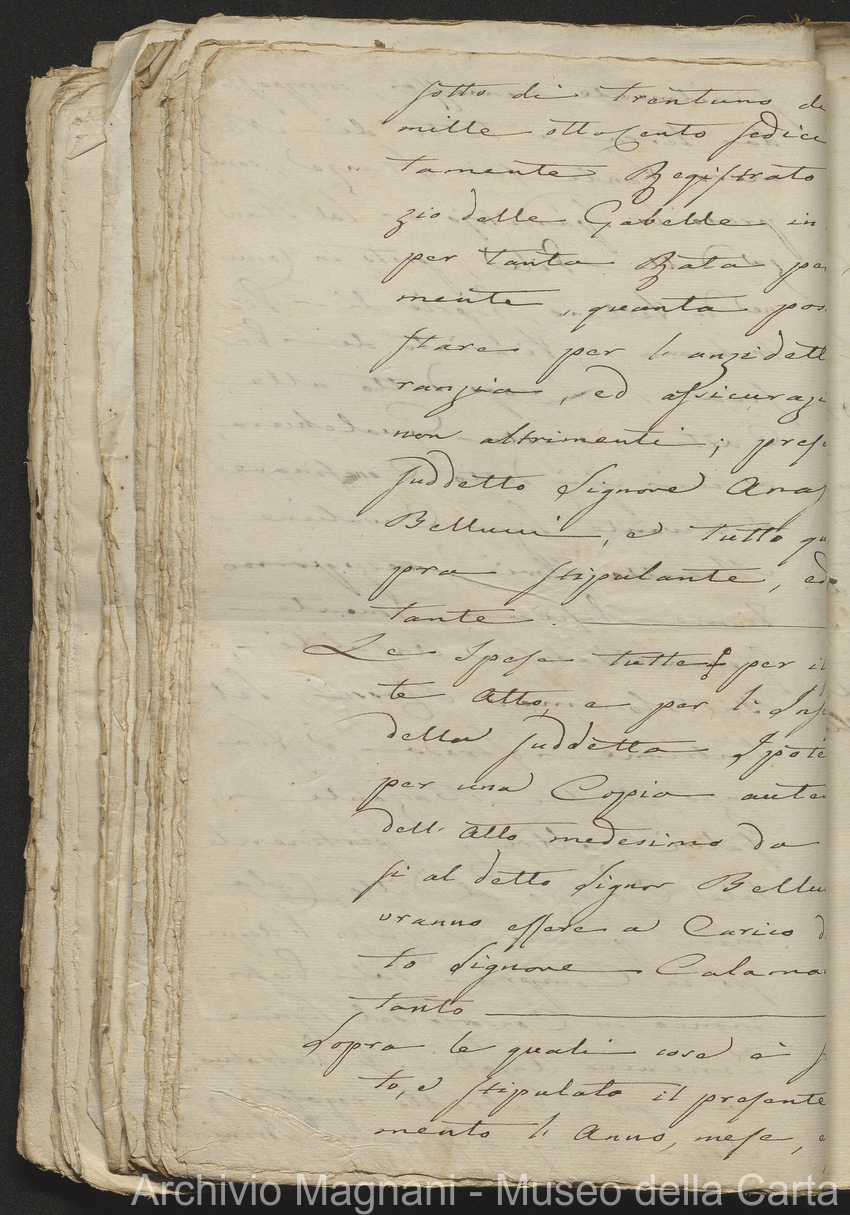 sotto di trentuno de
mille ottoCento sedice
tamente Registrato
zio delle Gabelle in
per tanta Rata pe
mente, quanta pos
stare per l'anzidett
ranzia, ed assicuraz
non altrimenti; prese
suddetto Signore Anas
Bellucci, e tutto qu
pra stipulante, ed
tante.
Le Spese tutte per il
te Atto, e per l'Ins
della suddetta Ipote
per una Copia aute
dell'Atto medesimo da
si al detto Signor Bellu
vranno essere a Carico d
to Signore Calama
tanto
Sopra le quali cose è
to, e stipulato il presente
mento l'Anno, mese,
Archivio Magnani - Museo della Carta